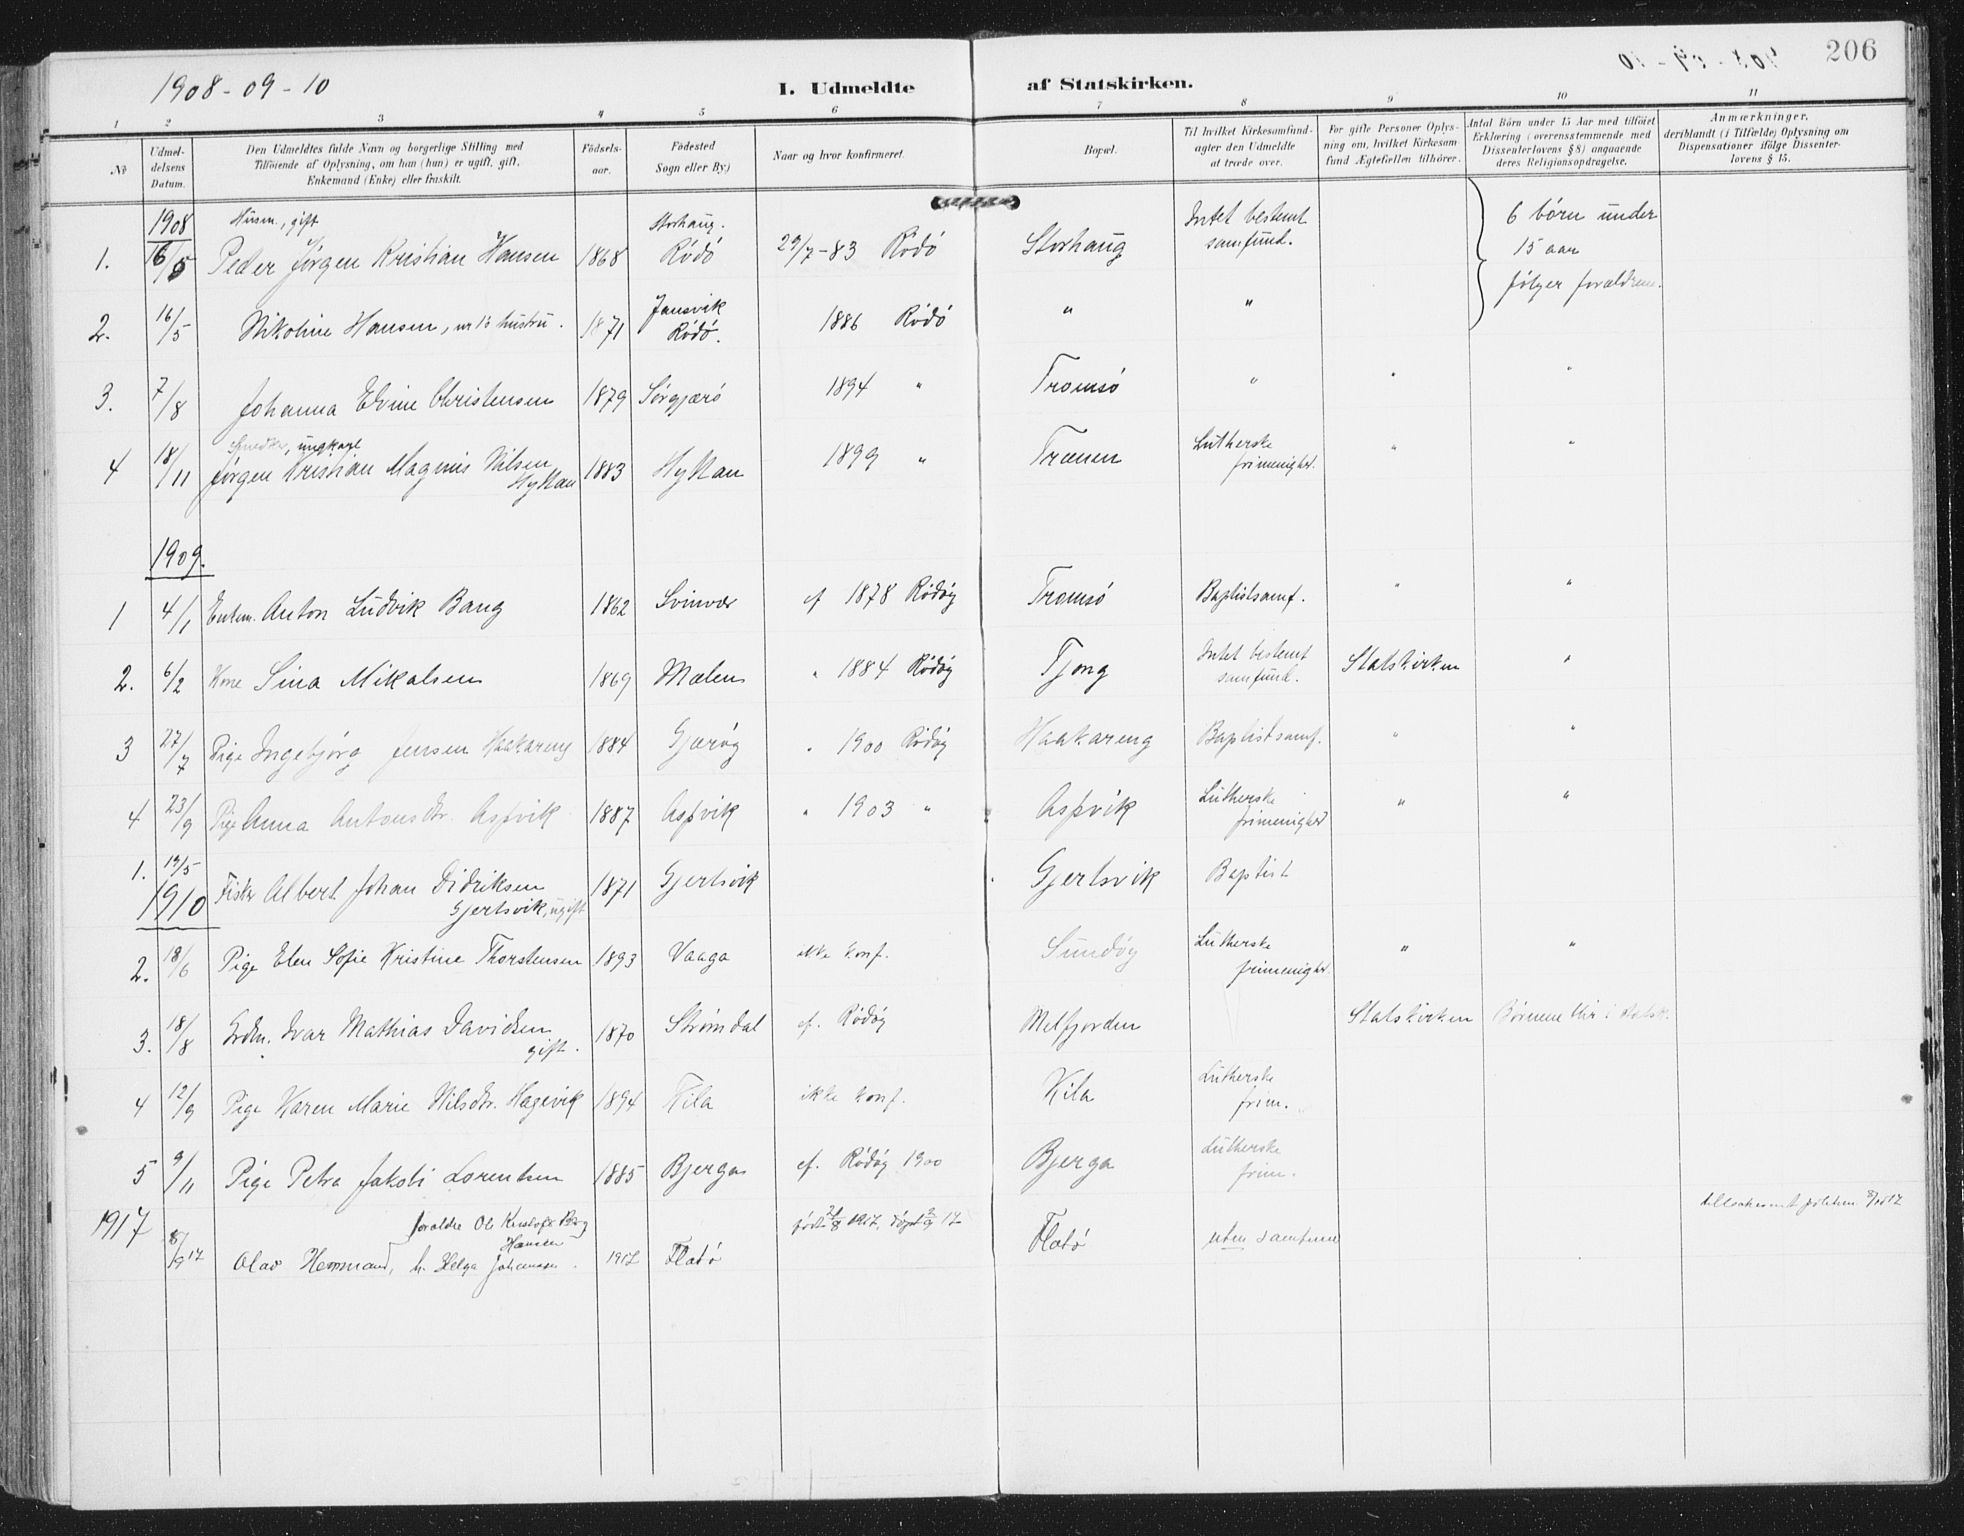 206
1908-09-10
I. Udmeldte af Statskirken.
1 2 3 4 5 6 7 8 9 10 11
No
Udmel-
delsens
Datum.
Den Udmeldtes fulde Navn og borgerlige Stilling med
Tilföiende af Oplysning, om han (hun) er ugift, gift,
Enkemand (Enke) eller fraskilt.
Födsels-
aar.
Födested
Sogn eller By.)
Naar og hvor konfirmeret.
Bopæl.
Til hvilket Kirkesamfund-
agter den Udmeldte
at træde over.
For gifte Personer Oplys-
ning om, hvilket Kirkesam
fund Ægtefællen tilhörer.
Antal Börn under 15 Aar med tilföiet
Erklæring (overensstemmende med
Dissenterlovens § 8) angaaende
deres Religionsopdragelse.
Anmærkninger,
deriblandt (i Tilfælde) Oplysning om
Dispensationer ifölge Dissenter-
lovens § 15.
1908 Husm., gift Storhaug. Intet bestemt 6 börn under
1. 16/5 Peder Jörgen Kristian Hansen 1868 Rödö 29/7-83 Rödö Storhaug samfund. 15 aar
følger forældrene.
2. 16/5 Nikoline Hansen, nr 1s hustru. 1871 Jansvik Rödö. 1886 Rödö " "
3. 7/8 Johanna Elvine Christensen 1879 Sörgjærö 1894 " Tromsö " " "
Snedker, ungkarl
4 18/11 Jørgen Kristian Magnus Nilsen Hyttan 1883 Hyttan 1899 " Trænen Lutherske frimenighed. " "
1909.
1 4/1 Enkem. Anton Ludvik Bang 1862 Svinvær cf 1878 Rödöy Tromsö Baptistsamf. " "
2. 6/2 Kone Sina Mikalsen 1869 Mælen " 1884 Rödöy Tjong Intet bestemt samfund. Statskirken "
3 27/7 Pige Ingebjörg Jensen Haakareng 1884 Gjæröy " 1900 Rödöy Haakareng Baptistsamf. " "
4 23/9 Pige Anna Antonsdtr. Aspvik 1887 Aspvik " 1903 " Aspvik Lutherske frimenighed " "
1. 19/5 Fisker Albert Johan Didriksen 1871 Gjertsvik Gjertsvik Baptist
1910 Gjertsvik, ugift
2. 18/6 Pige Elen Sofie Kristine Thorstensen 1893 Vaaga ikke konf. Sundöy Lutherske frimenighed. " "
3. 18/8 Grdm. Ivar Mathias Davidsen gift. 1870 Strömdal cf. Rödöy Melfjorden Statskirken Børnene blir i statsk.
4 12/9 Pige Karen Marie Nilsdtr. Hagevik 1894 Kila ikke konf. Kila Lutherske frim.
5 9/11 Pige Petra Jakobi Lorentsen 1885 Bjerga cf. Rödöy 1900 Bjerga Lutherske frim.
1917 forældre Ole Kristofer Berg Hansen født 21/8 1917, döpt 2/9 17
8/9 17 Olav Hemmand, h. Helga Johansen. 1917 Flatö Flatö uten samfund